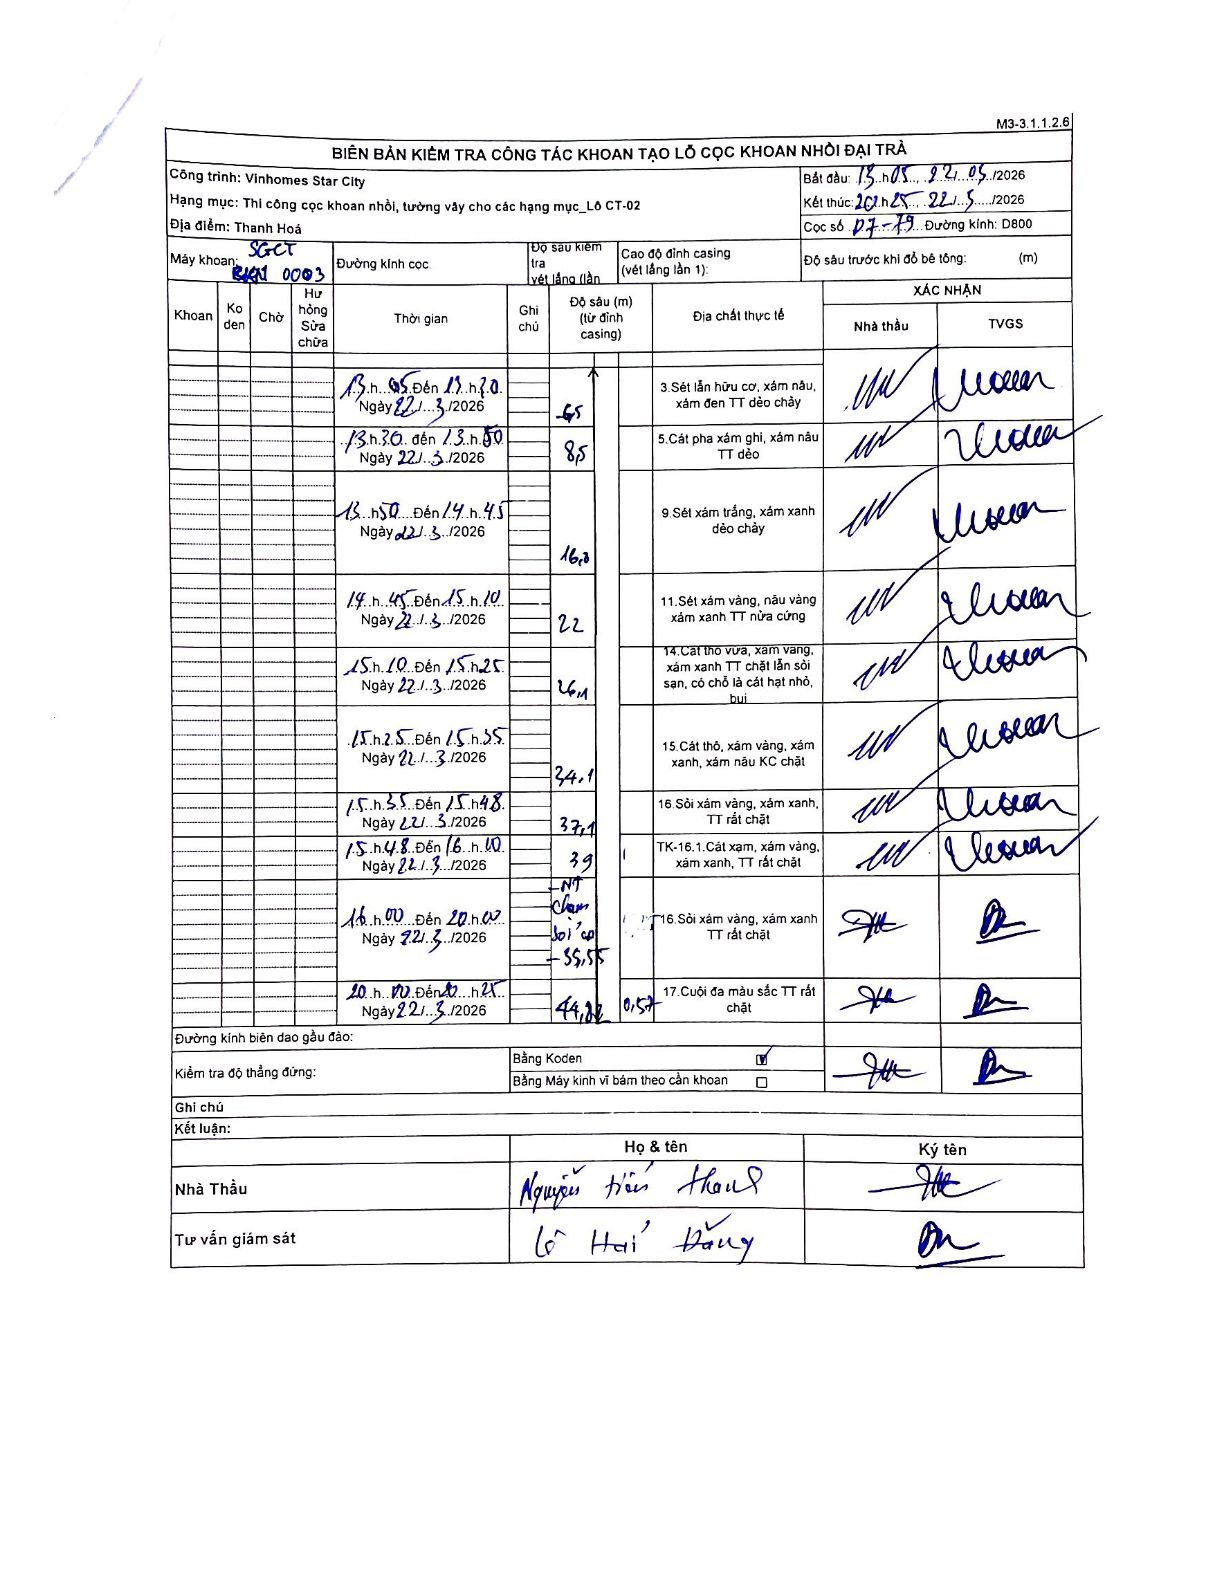 M3-3.1.1.2.6
BIÊN BẢN KIỂM TRA CÔNG TÁC KHOAN TẠO LỖ CỌC KHOAN NHỒI ĐẠI TRÀ
Công trình: Vinhomes Star City
Hạng mục: Thi công cọc khoan nhồi, tường vây cho các hạng mục_Lô CT-02
Địa điểm: Thanh Hoá
Bắt đầu: 13 h 05 22/ 03 /2026
Kết thúc: 20 h 25 22/ 3 /2026
Cọc số P7-79 Đường kính: D800
Máy khoan: SGCT
0003
Đường kính cọc
Độ sâu kiểm tra
vét lắng (lần
Cao độ đỉnh casing
(vét lắng lần 1):
Độ sâu trước khi đổ bê tông: (m)
Khoan
Ko den
Chờ
Hư hỏng Sửa chữa
Thời gian
Ghi chú
Độ sâu (m)
(từ đỉnh casing)
Địa chất thực tế
XÁC NHẬN
Nhà thầu
TVGS
13 h 05 Đến 13 h 30
Ngày 22/ 3 /2026
3.Sét lẫn hữu cơ, xám nâu,
xám đen TT dẻo chảy
13 h 30 đến 13 h 50
Ngày 22/ 3 /2026
8,5
5.Cát pha xám ghi, xám nâu
TT dẻo
13 h 50 Đến 14 h 45
Ngày 22/ 3 /2026
9.Sét xám trắng, xám xanh
dẻo chảy
14 h 45 Đến 15 h 10
Ngày 22/ 3 /2026
22
11.Sét xám vàng, nâu vàng
xám xanh TT nửa cứng
15 h 10 Đến 15 h 25
Ngày 22/ 3 /2026
26,1
14.Cát thô vừa, xám vàng,
xám xanh TT chặt lẫn sỏi
sạn, có chỗ là cát hạt nhỏ,
bụi
15 h 25 Đến 15 h 35
Ngày 22/ 3 /2026
34,1
15.Cát thô, xám vàng, xám
xanh, xám nâu KC chặt
15 h 35 Đến 15 h 48
Ngày 22/ 3 /2026
37,1
16.Sỏi xám vàng, xám xanh,
TT rất chặt
15 h 48 Đến 16 h 00
Ngày 22/ 3 /2026
39
TK-16.1.Cát xạm, xám vàng,
xám xanh, TT rất chặt
16 h 00 Đến 20 h 00
Ngày 22/ 3 /2026
-NT
Chạm
16.Sỏi xám vàng, xám xanh
TT rất chặt
20 h 00 Đến 20 h 25
Ngày 22/ 3 /2026
0,57
17.Cuội đa màu sắc TT rất
chặt
Đường kính biên dao gầu đào:
Kiểm tra độ thẳng đứng:
Bằng Koden
Bằng Máy kinh vĩ bám theo cần khoan
Ghi chú
Kết luận:
Họ & tên
Ký tên
Nhà Thầu
Nguyễn tiến thanh
Tư vấn giám sát
Lê Hải Đăng